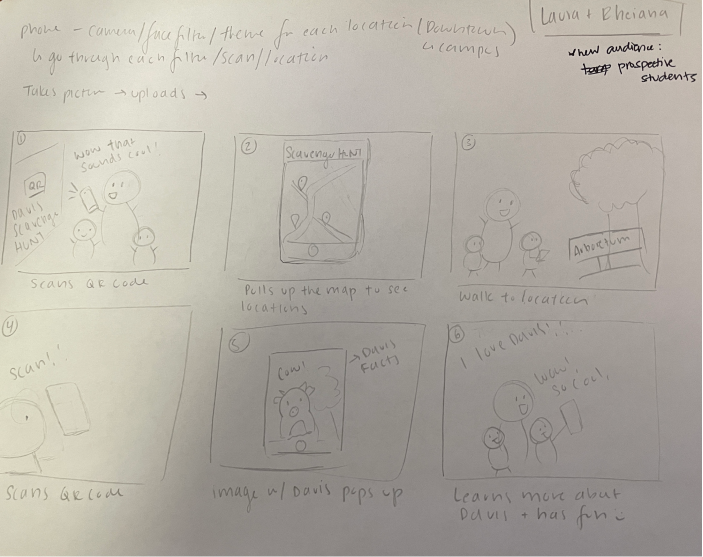 phone - camera/face filter/theme for each location (Downtown)
↳ campus
↳ go through each filter/scan/location
Takes picture → uploads →
Laura + Rheiana
when audience:
prospective
students
①
wow that
sounds cool!
QR
DAVIS
SCAVENGER
HUNT
Scans QR code
②
Scavenger HUNT
Pulls up the map to see
locations
③
Arboretum
walk to location
④
scan!!
Scans QR code
⑤
cow!
→ Davis
Facts
Image w/ Davis pops up
⑥
I love Davis!!
wow!
so cool,
Learns more about
Davis + has fun